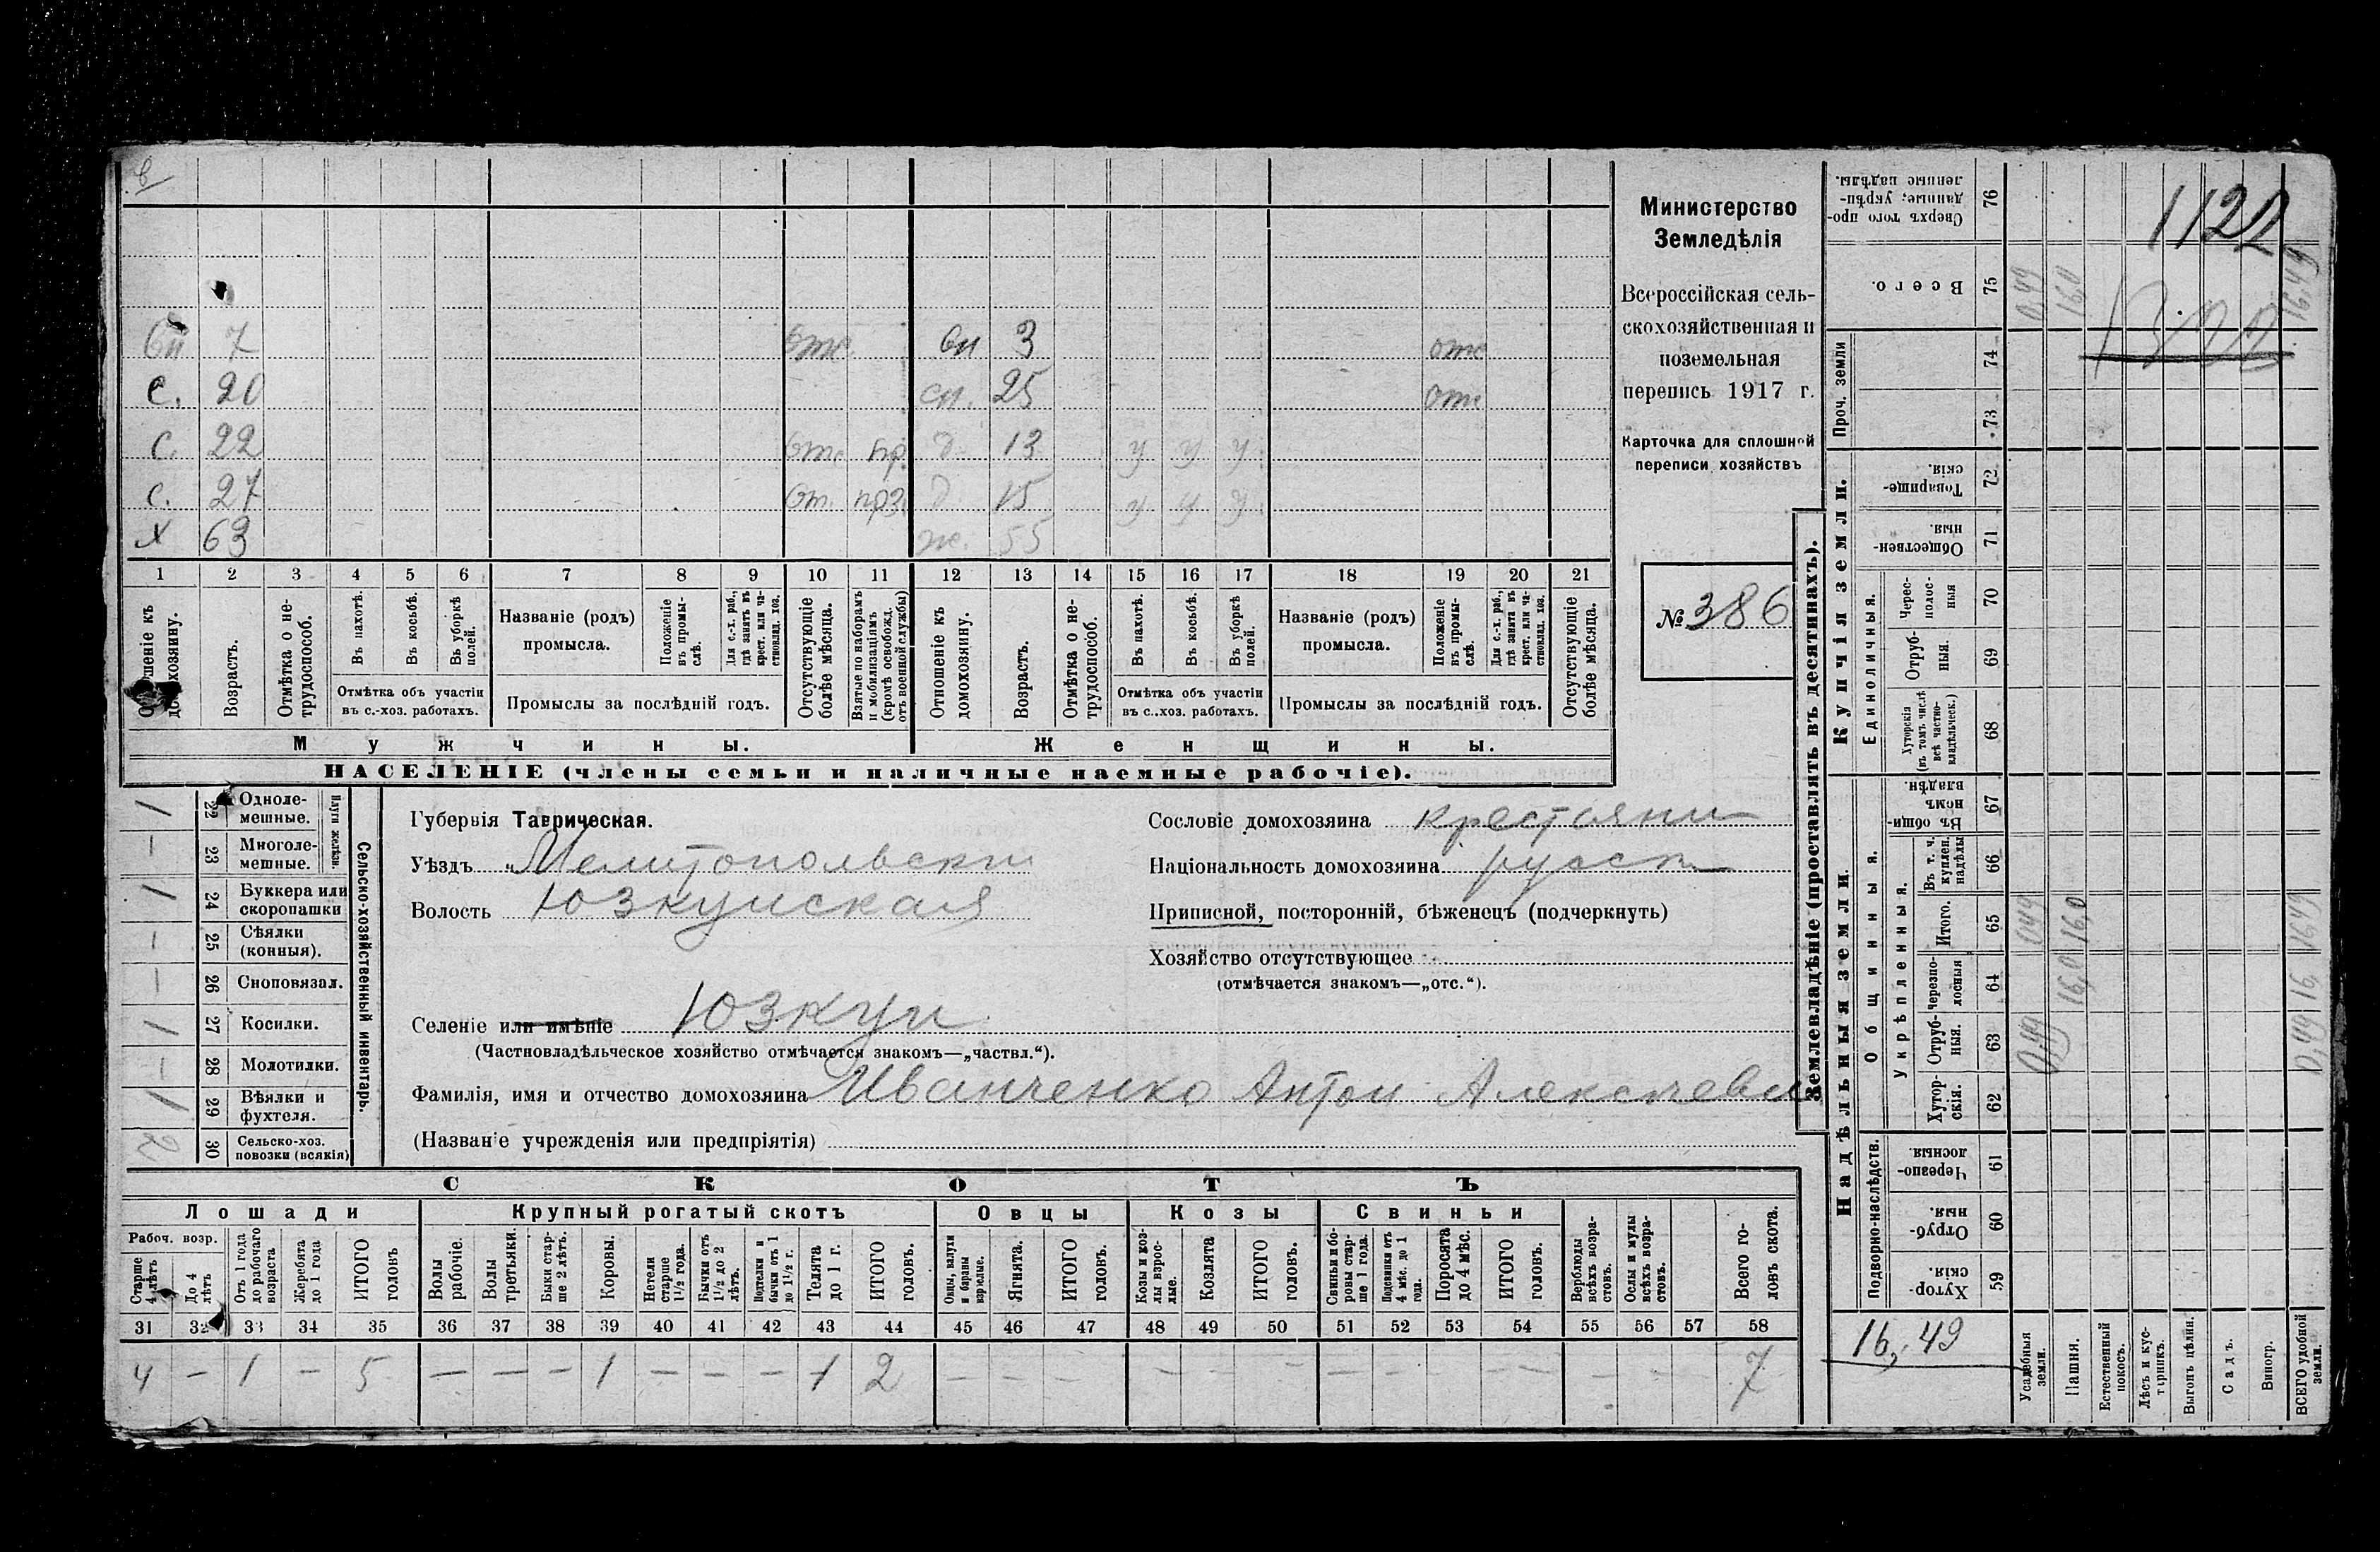 в
Министерство
Земледѣлія
Всероссійская сель-
скохозяйственная и
поземельная
перепись 1917 г.
Карточка для сплошной
переписи хозяйствъ
№ 386
вн 7 отс. вн 3 отс
с. 20 сн. 25 отс
с. 22 отс пр. д. 13 у у у
с. 27 от. прз. д 15 у у у
х 63 же. 55
1 2 3 4 5 6 7 8 9 10 11 12 13 14 15 16 17 18 19 20 21
Отношеніе къ домохозяину.
Возрастъ.
Отмѣтка о не-
трудоспособ.
Въ пахотѣ.
Въ косьбѣ.
Въ уборкѣ полей.
Отмѣтка объ участіи
въ с.-хоз. работахъ.
Названіе (родъ)
промысла.
Положеніе въ промы-
слѣ.
Для с.-х. раб., гдѣ занятъ въ крест. или ча-
стновлад. хоз.
Промыслы за послѣдній годъ.
Отсутствующіе болѣе мѣсяца.
Взятые по наборамъ и мобилизаціямъ (кромѣ освобожд. отъ военной службы)
Отношеніе къ домохозяину.
Возрастъ.
Отмѣтка о не-
трудоспособ.
Въ пахотѣ.
Въ косьбѣ.
Въ уборкѣ полей.
Отмѣтка объ участіи
въ с..хоз. работахъ.
Названіе (родъ)
промысла.
Положеніе въ промы-
слѣ.
Для с.-х. раб., гдѣ занята въ крест. или ча-
стновлад. хоз.
Промыслы за послѣдній годъ.
Отсутствующіе болѣе мѣсяца.
Мужчины.
Женщины.
НАСЕЛЕНІЕ (члены семьи и наличные наемные рабочіе).
Сельско-хозяйственный инвентарь.
Плуги желѣзн.
1 22 Одноле-
мешные.
— 23 Многоле-
мешные.
1 24 Буккера или
скоропашки
— 25 Сѣялки
(конныя).
— 26 Сноповязал.
1 27 Косилки.
— 28 Молотилки.
1 29 Вѣялки и
фухтеля.
2 30 Сельско-хоз.
повозки (всякія)
Губернія Таврическая.
Уѣздъ Мелитопольскі
Волость Юзкуиская
Селеніе или имѣніе Юзкуи
(Частновладѣльческое хозяйство отмѣчается знакомъ—„частвл.“).
Фамилія, имя и отчество домохозяина Иванченко Антон Алексѣеви
(Названіе учрежденія или предпріятія)
Сословіе домохозяина крестьяни
Національность домохозяина русск
Приписной, посторонній, бѣженецъ (подчеркнуть)
Хозяйство отсутствующее
(отмѣчается знакомъ—„отс.“).
СКОТЪ
Лошади
Крупный рогатый скотъ
Овцы
Козы
Свиньи
Рабоч. возр.
Старше 4 лѣтъ
До 4 лѣтъ
Отъ 1 года до рабочаго возраста
Жеребята до 1 года
ИТОГО головъ
Волы рабочіе.
Волы третьяки.
Быки стар-
ше 2 лѣтъ.
Коровы.
Нетели старше 1½ года.
Бычки отъ 1½ до 2 лѣтъ.
Подтелки и бычки отъ 1 до 1½ г.
Телята до 1 г.
ИТОГО головъ.
Овцы, валухи и бараны взрослые.
Ягнята.
ИТОГО головъ.
Козы и коз-
лы взрос-
лые.
Козлята
ИТОГО головъ.
Свиньи и бо-
ровы стар-
ше 1 года.
Подсвинки отъ 4 мѣс. до 1 года.
Поросята до 4 мѣс.
ИТОГО головъ.
Верблюды всѣхъ возра-
стовъ.
Ослы и мулы всѣхъ возра-
стовъ.
Всего го-
ловъ скота.
31 32 33 34 35 36 37 38 39 40 41 42 43 44 45 46 47 48 49 50 51 52 53 54 55 56 57 58
4 — 1 — 5 — — — 1 — — — 1 2 — — — — — — — — — — — — 7
Землевладѣніе (проставлять въ десятинахъ).
Надѣльныя земли.
Купчія земли.
Проч. земли
Подворно-наслѣдств.
Общинныя.
Укрѣпленныя.
Единоличныя.
Сверхъ того про-
данные, укрѣп-
ленные надѣлы. 76
Всего. 75
74
73
Товарище-
скія. 72
Обществен-
ныя. 71
Черес-
полос-
ныя 70
Отруб-
ныя. 69
Хуторскія
(въ томъ числѣ
всѣ частно-
владѣльческ.) 68
Въ общи-
номъ
владѣн. 67
Въ т. ч.
куплен.
надѣлы 66
Итого. 65
Черезпо-
лосныя 64
Отруб-
ныя. 63
Хутор-
скія. 62
Черезпо-
лосныя. 61
Отруб-
ныя. 60
Хутор-
скія. 59
16,49
Усадебныя земли.
Пашня.
Естественный покосъ.
Лѣсъ и кус-
тарникъ.
Выгонъ цѣлин.
Садъ.
Виногр.
ВСЕГО удобной земли.
0,49 16,0 16,49
0,49 16,0 16,49
16,0 16
0,49 0,49
1122